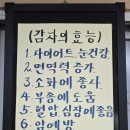 (감자의 효능)
1. 다이어트. 눈건강
2. 면역력 증가.
3. 소화에 좋다.
4. 부종에 도움
5. 혈압, 심장에 좋음
6. 암예방